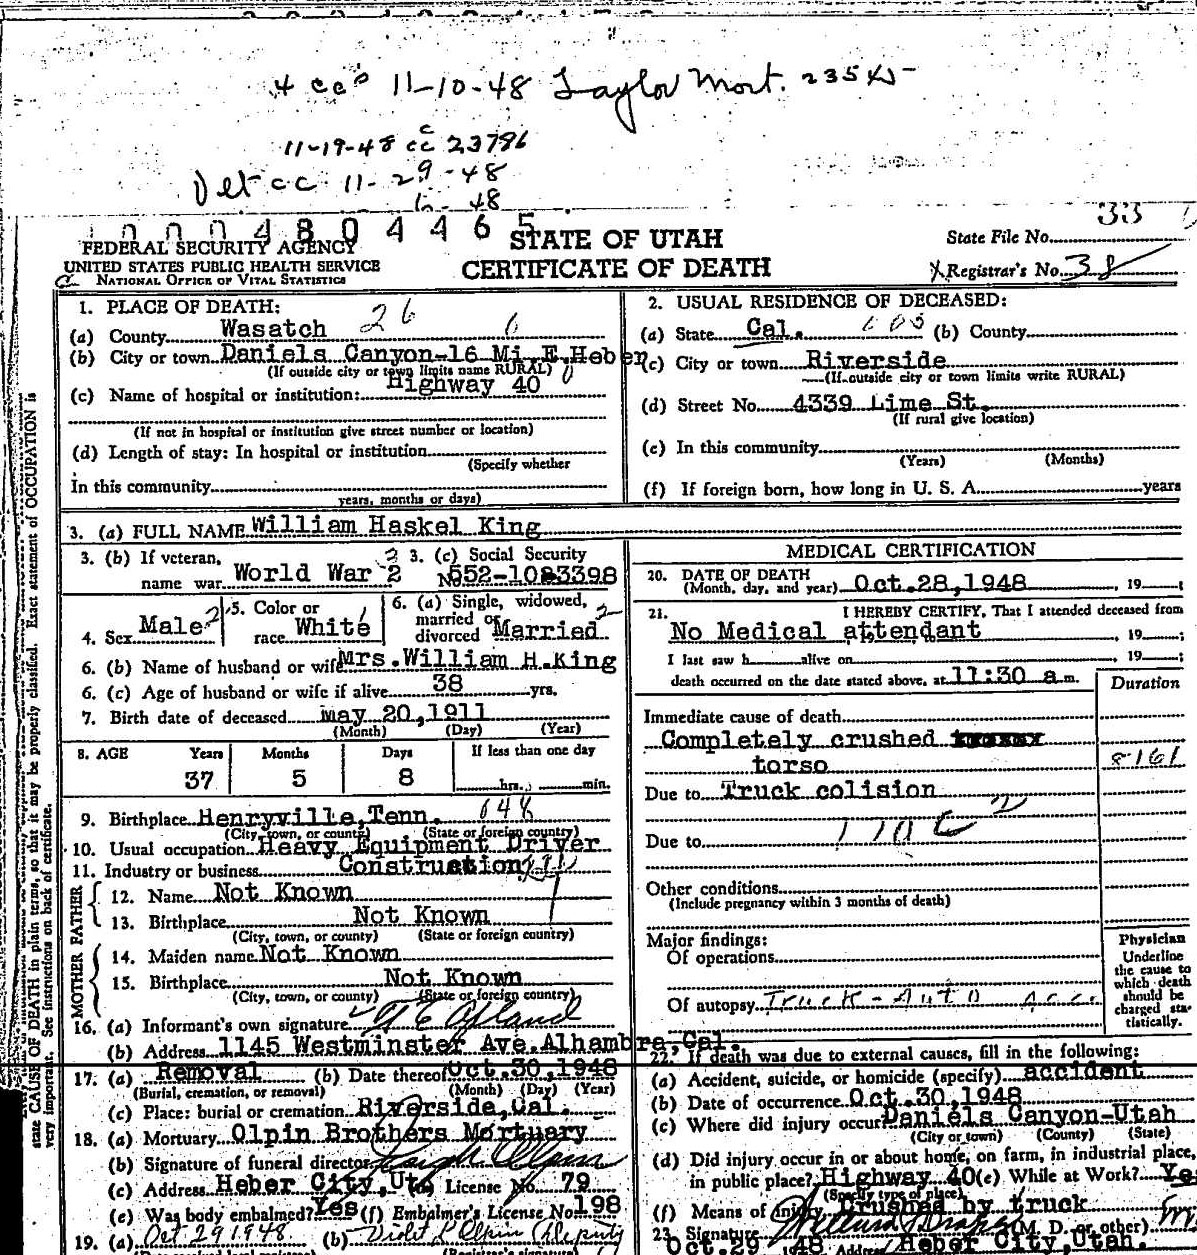 4 cc's 11-10-48 Taylor Mort. 235
11-19-48 cc 23786
cc 11-29-48
48
000480 4465
STATE OF UTAH
CERTIFICATE OF DEATH
FEDERAL SECURITY AGENCY
UNITED STATES PUBLIC HEALTH SERVICE
NATIONAL OFFICE OF VITAL STATISTICS
State File No. 33
Registrar's No. 38
1. PLACE OF DEATH: 26 6
(a) County Wasatch
(b) City or town Daniels Canyon-16 Mi.E.Heber
(If outside city or town limits name RURAL)
(c) Name of hospital or institution: Highway 40
(If not in hospital or institution give street number or location)
(d) Length of stay: In hospital or institution
(Specify whether
In this community
years, months or days)
2. USUAL RESIDENCE OF DECEASED:
(a) State Cal. (b) County
(c) City or town Riverside
(If outside city or town limits write RURAL)
(d) Street No. 4339 Lime St.
(If rural give location)
(e) In this community
(Years) (Months)
(f) If foreign born, how long in U. S. A. years
3. (a) FULL NAME William Haskel King
3. (b) If veteran, name war World War 2
3. (c) Social Security
4. Sex Male 2
5. Color or race White 1
6. (a) Single, widowed, married or divorced Married 2
6. (b) Name of husband or wife Mrs.William H.King
6. (c) Age of husband or wife if alive 38 yrs.
7. Birth date of deceased may 20,1911
(Month) (Day) (Year)
8. AGE Years Months Days If less than one day
37 5 8 hrs. min.
9. Birthplace Henryville,Tenn. 648
(City, town, or county) (State or foreign country)
10. Usual occupation Heavy Equipment Driver
11. Industry or business Construction
FATHER
12. Name Not Known
13. Birthplace Not Known
(City, town, or county) (State or foreign country)
MOTHER
14. Maiden name Not Known
15. Birthplace Not Known
(City, town, or county) (State or foreign country)
16. (a) Informant's own signature
(b) Address 1145 Westminster Ave.Alhambra,Cal.
17. (a) Removal (b) Date thereof Oct.30,1948
(Burial, cremation, or removal) (Month) (Day) (Year)
(c) Place: burial or cremation Riverside,Cal.
18. (a) Mortuary Olpin Brothers Mortuary
(b) Signature of funeral director
(c) Address Heber City,Uta License No. 79
(e) Was body embalmed? Yes (f) Embalmer's License No. 198
19. (a) Oct 29 1948 (b) Violet Olpin (Deputy
MEDICAL CERTIFICATION
20. DATE OF DEATH
(Month, day, and year) Oct.28,1948 , 19 ;
21. I HEREBY CERTIFY, That I attended deceased from
No Medical attendant , 19 ;
I last saw h alive on , 19 ;
death occurred on the date stated above, at 11:30 a m.
Duration
Immediate cause of death
Completely crushed
torso
8161
Due to Truck colision
Due to
Other conditions
(Include pregnancy within 3 months of death)
Major findings:
Of operations
Of autopsy Truck-Auto Acc
Physician
Underline
the cause to
which death
should be
charged sta-
tistically.
22. If death was due to external causes, fill in the following:
(a) Accident, suicide, or homicide (specify) accident
(b) Date of occurrence Oct.30,1948
(c) Where did injury occur Daniels Canyon-Utah
(City or town) (County) (State)
(d) Did injury occur in or about home, on farm, in industrial place,
in public place? Highway 40 (e) While at Work? Ye
(Specify type of place)
(f) Means of injury Crushed by truck
23. Signature (M. D. or other)
Oct.29 1948 Address Heber City,Utah.
state CAUSE OF DEATH in plain terms, so that it may be properly classified. Exact statement of OCCUPATION is
very important. See instructions on back of certificate.